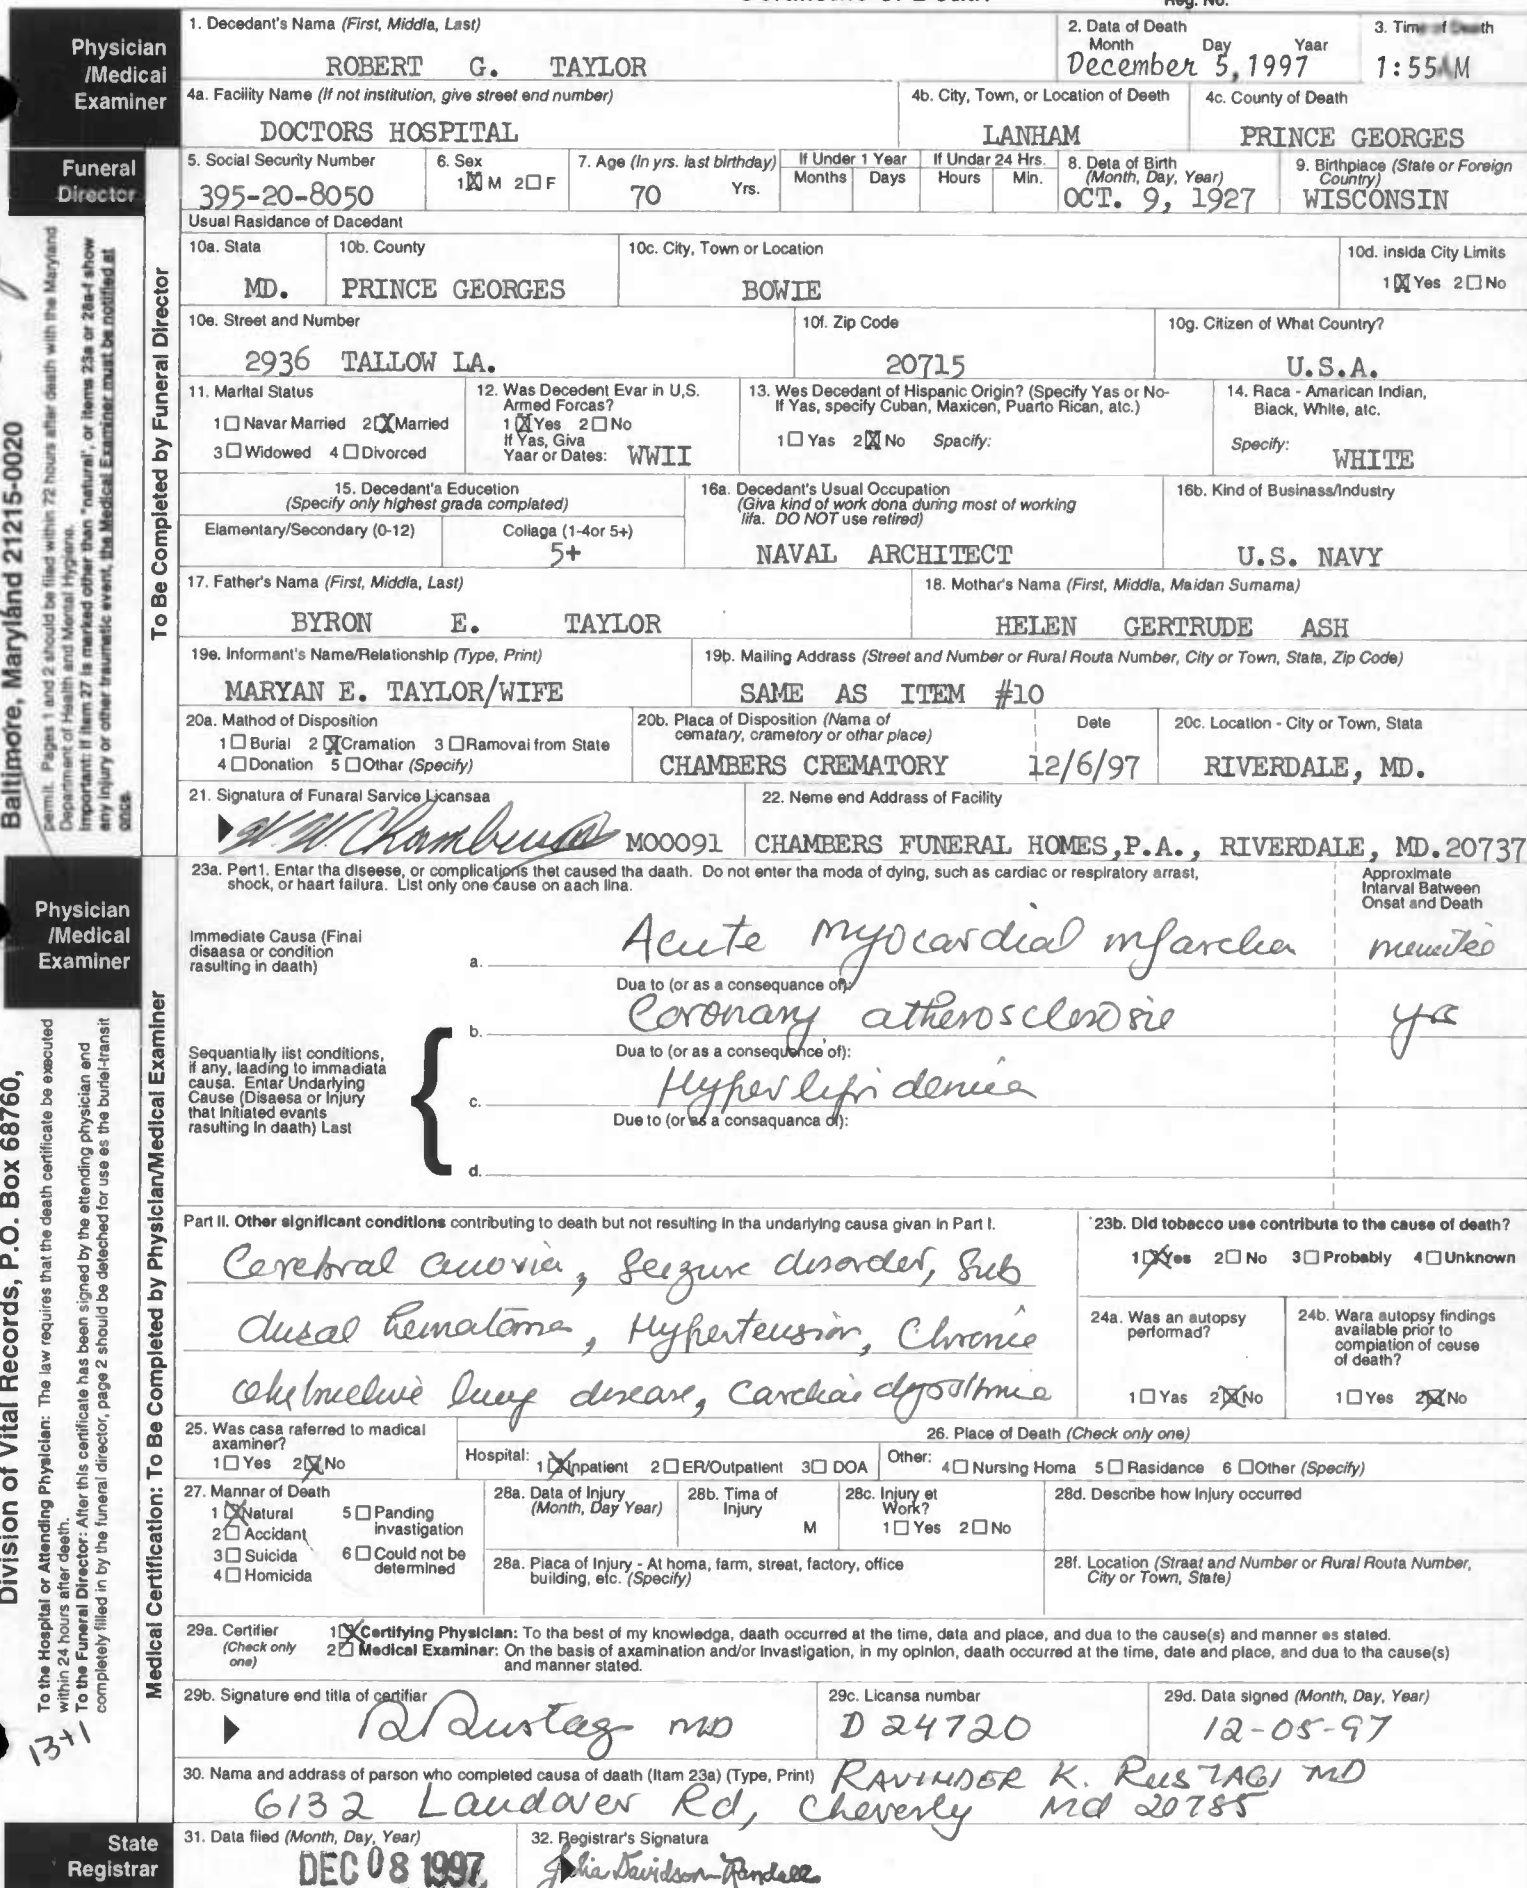 Physician
/Medical
Examiner
1. Decedant's Name (First, Middle, Last)
ROBERT G. TAYLOR
2. Data of Death
Month Day Yaar
December 5, 1997
3. Time of Death
1:55 AM
4a. Facility Name (If not institution, give street end number)
DOCTORS HOSPITAL
4b. City, Town, or Location of Deeth
LANHAM
4c. County of Death
PRINCE GEORGES
Funeral
Director
5. Social Security Number
395-20-8050
6. Sex
1☒ M 2☐ F
7. Age (In yrs. last birthday)
70 Yrs.
If Under 1 Year
Months Days
If Undar 24 Hrs.
Hours Min.
8. Deta of Birth
(Month, Day, Year)
OCT. 9, 1927
9. Birthplace (State or Foreign
Country)
WISCONSIN
Usual Rasidance of Dacedant
10a. Stata
MD.
10b. County
PRINCE GEORGES
10c. City, Town or Location
BOWIE
10d. insida City Limits
1☒ Yes 2☐ No
10e. Street and Number
2936 TALLOW LA.
10f. Zip Code
20715
10g. Citizen of What Country?
U.S.A.
11. Marital Status
1☐ Navar Married 2☒ Married
3☐ Widowed 4☐ Divorced
12. Was Decedent Evar in U,S.
Armed Forcas?
1☒ Yes 2☐ No
If Yas, Giva
Yaar or Dates: WWII
13. Wes Decedant of Hispanic Origin? (Specify Yas or No-
If Yas, specify Cuban, Maxicen, Puarto Rican, atc.)
1☐ Yas 2☒ No Spacify:
14. Raca - Amarican Indian,
Biack, White, atc.
Specify:
WHITE
15. Decedant'a Educetion
(Specify only highest grada complated)
Elamentary/Secondary (0-12)
Coliaga (1-4or 5+)
5+
16a. Decedant's Usual Occupation
(Giva kind of work dona during most of working
lifa. DO NOT use retired)
NAVAL ARCHITECT
16b. Kind of Businass/Industry
U.S. NAVY
17. Father's Name (First, Middla, Last)
BYRON E. TAYLOR
18. Mothar's Nama (First, Middla, Maidan Sumama)
HELEN GERTRUDE ASH
19e. Informant's Name/Relationship (Type, Print)
MARYAN E. TAYLOR/WIFE
19b. Mailing Address (Street and Number or Rural Routa Number, City or Town, Stata, Zip Code)
SAME AS ITEM #10
20a. Mathod of Disposition
1☐ Burial 2☒ Cramation 3☐ Ramovai from State
4☐ Donation 5☐ Othar (Specify)
20b. Placa of Disposition (Nama of
cematary, crametory or othar place)
CHAMBERS CREMATORY
Dete
12/6/97
20c. Location - City or Town, Stata
RIVERDALE, MD.
21. Signatura of Funaral Sarvice Licansaa
W. W. Chambers M00091
22. Neme end Address of Facility
CHAMBERS FUNERAL HOMES,P.A., RIVERDALE, MD.20737
To Be Completed by Funeral Director
Baltimore, Maryland 21215-0020
permit. Pages 1 and 2 should be filed within 72 hours after death with the Maryland
Department of Health and Mental Hygiene.
Important: If item 27 is marked other than "natural", or items 23a or 28a-f show
any injury or other traumatic event, the Medical Examiner must be notified at
once.
Physician
/Medical
Examiner
23a. Pert1. Enter tha diseese, or complications thet caused tha daath. Do not enter tha moda of dying, such as cardiac or respiratory arrast,
shock, or haart failura. List only one cause on aach lina.
Approximate
Intarval Batween
Onsat and Death
Immediate Causa (Finai
disaasa or condition
rasulting in daath)
a. Acute myocardial infarction minutes
Dua to (or as a consequence of):
b. Coronary atherosclerosis yrs
Dua to (or as a consequence of):
c. Hyperlipidemia
Due to (or as a consaquanca of):
d.
Sequentially list conditions,
if any, laading to immadiata
causa. Entar Undarlying
Cause (Disaesa or Injury
that Initiated evants
rasulting In daath) Last
Part II. Other significant conditions contributing to death but not resulting in tha undarlying causa givan in Part I.
Cerebral anoxia, Seizure disorder, Sub
dural hematoma, Hypertension, Chronic
obstructive lung disease, Cardiac dysrhythmia
23b. Did tobacco use contributa to the cause of death?
1☒ Yes 2☐ No 3☐ Probably 4☐ Unknown
24a. Was an autopsy
performad?
1☐ Yas 2☒ No
24b. Wara autopsy findings
available prior to
compiation of ceuse
of death?
1☐ Yes 2☒ No
25. Was casa raferred to madical
axaminer?
1☐ Yes 2☒ No
26. Place of Death (Check only one)
Hospital: 1☒ Inpatient 2☐ ER/Outpatient 3☐ DOA
Other: 4☐ Nursing Homa 5☐ Rasidance 6 ☐ Other (Specify)
27. Mannar of Death
1☒ Natural
2☐ Accidant
3☐ Suicida
4☐ Homicida
5☐ Panding
invastigation
6☐ Could not be
determined
28a. Data of Injury
(Month, Day Year)
28b. Tima of
Injury
M
28c. Injury et
Work?
1☐ Yes 2☐ No
28d. Describe how Injury occurred
28a. Piaca of Injury - At homa, farm, streat, factory, office
building, etc. (Specify)
28f. Location (Straat and Number or Rural Routa Number,
City or Town, State)
29a. Certifier
(Check only
one)
1☒ Certifying Physician: To tha best of my knowledga, daath occurred at the time, data and place, and due to the cause(s) and manner es stated.
2☐ Medical Examiner: On the basis of axamination and/or Invastigation, in my opinion, daath occurred at the time, date and place, and due to tha cause(s)
and manner stated.
29b. Signature end titla of certifiar
R Rustagi MD
29c. Licansa numbar
D 24720
29d. Data signed (Month, Day, Year)
12-05-97
30. Nama and address of parson who completed causa of daath (Itam 23a) (Type, Print) RAVINDER K. RUSTAGI MD
6132 Landover Rd, Cheverly Md 20785
Medical Certification: To Be Completed by Physician/Medical Examiner
Division of Vital Records, P.O. Box 68760,
To the Hospital or Attending Physician: The law requires that the death certificate be executed
within 24 hours after deeth.
To the Funeral Director: After this certificate has been signed by the ettending physician end
completely filled in by the funeral director, page 2 should be deteched for use es the buriel-transit
13+1
State
Registrar
31. Data filed (Month, Day, Year)
DEC 08 1997
32. Registrar's Signatura
Julia Davidson-Randall